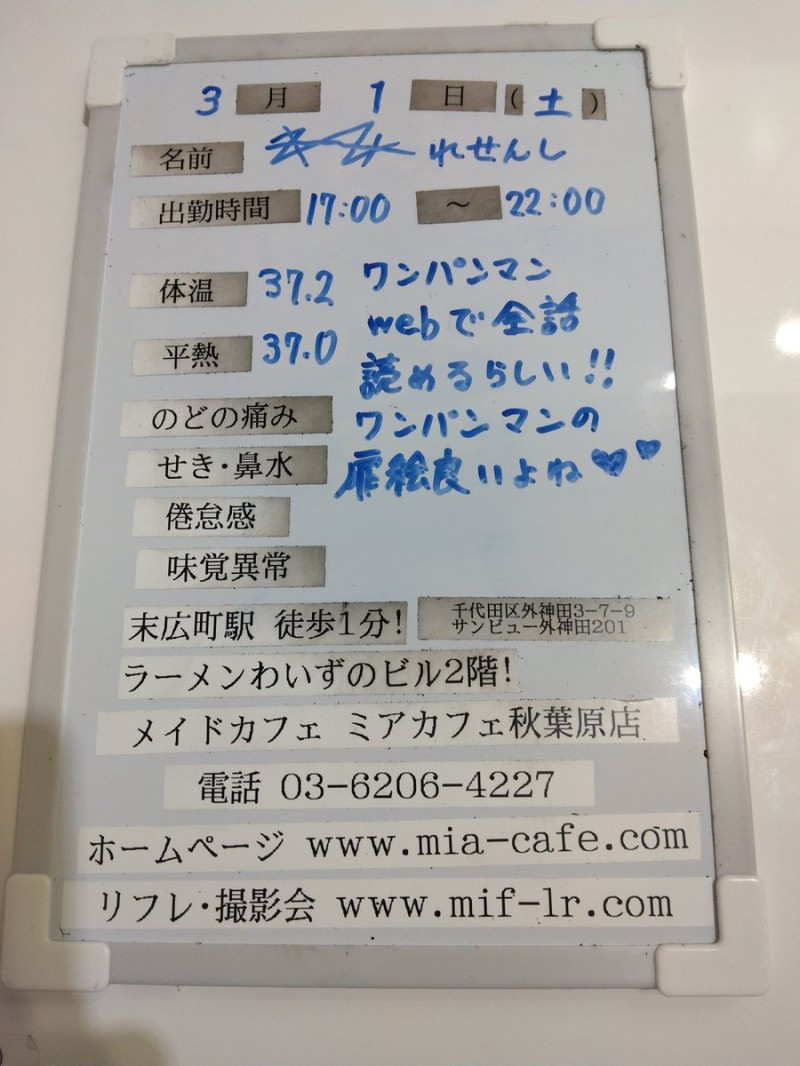 3 月 1 日 (土)
名前 れせんし
出勤時間 17:00 ～ 22:00
体温 37.2
平熱 37.0
ワンパンマン
webで全話
読めるらしい!!
ワンパンマンの
扉絵良いよね♥♥
のどの痛み
せき・鼻水
倦怠感
味覚異常
末広町駅 徒歩1分!
千代田区外神田3-7-9
サンビュー外神田201
ラーメンわいずのビル2階!
メイドカフェ ミアカフェ秋葉原店
電話 03-6206-4227
ホームページ www.mia-cafe.com
リフレ・撮影会 www.mif-lr.com